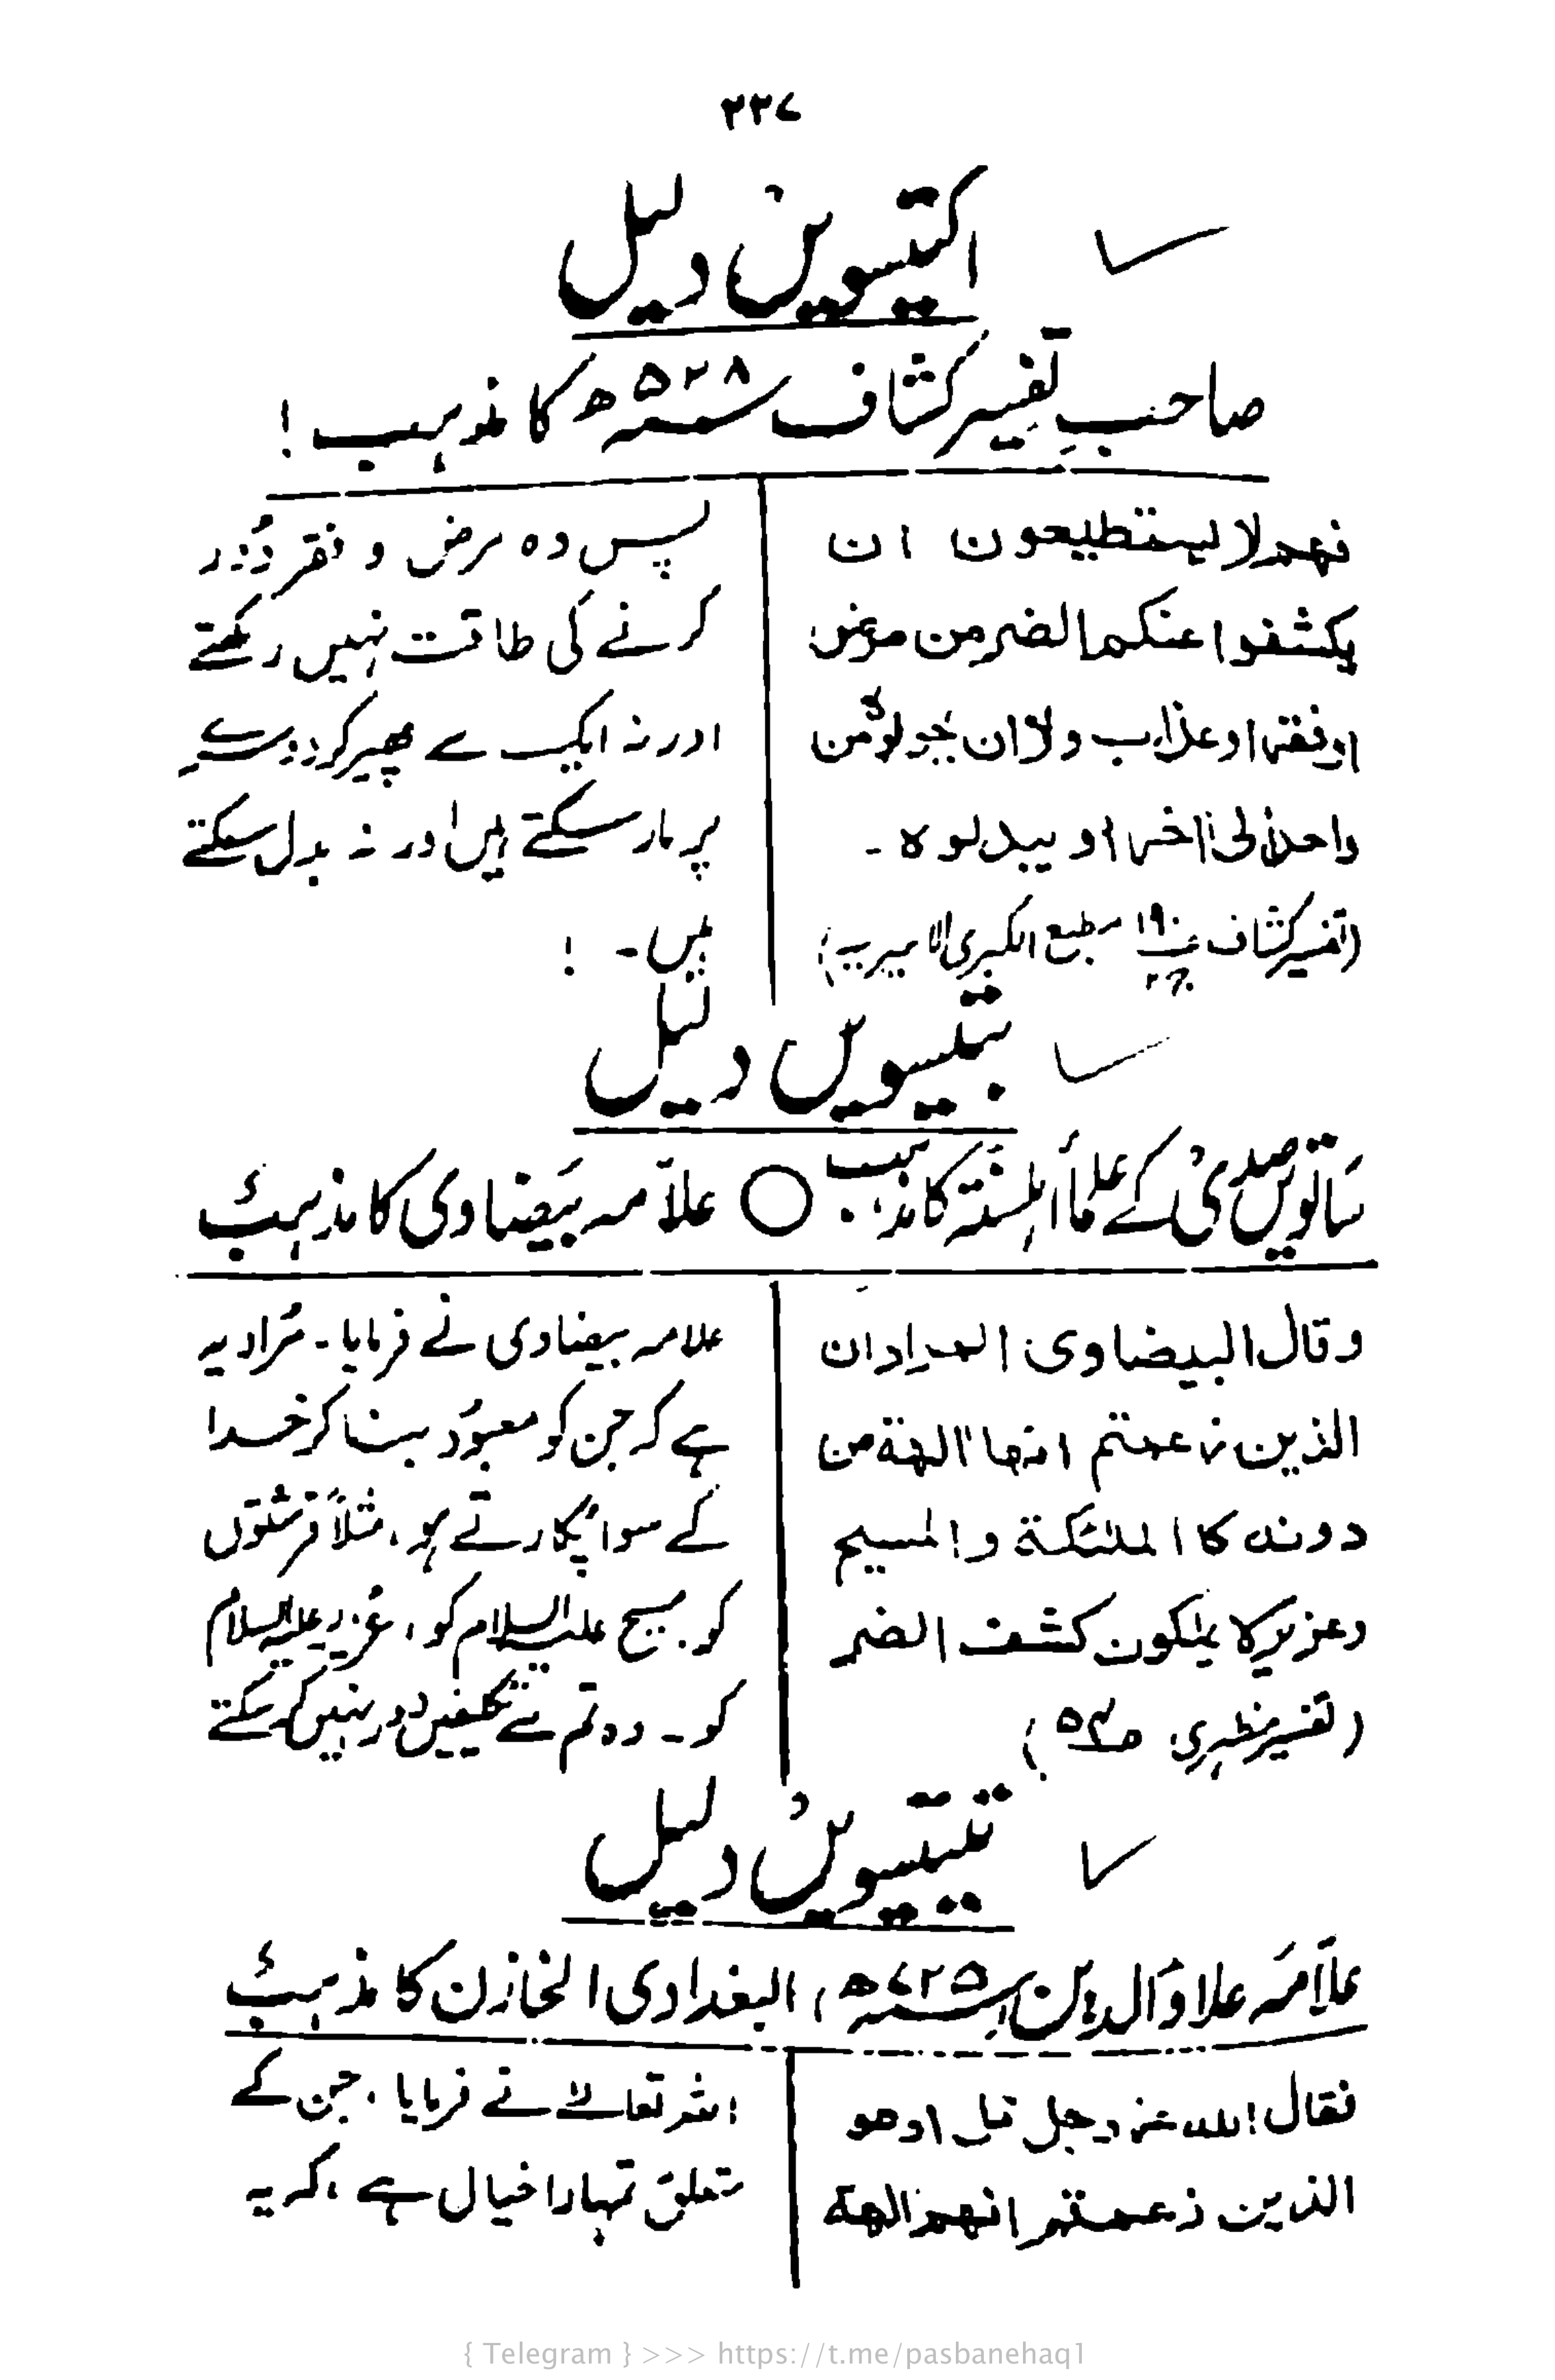 ۲۳۷
اکتیسویں دلیل
صاحبِ تفسیر کشاف سنہ ۵۲۸ھ کا مذہب !
فهم لا یستطیعون ان
یکشفوا عنکم الضر من مرض
او فقر او عذاب ولا ان یحولوه من
واحد الی اخر او یبدلوه ۔
(تفسیر کشاف مطبع الکبری الامیریہ)
پس وہ مرض و فقر دُور
کرنے کی طاقت نہیں رکھتے
اور نہ ایک سے پھیر کر دوسرے
پر مار سکتے ہیں اور نہ بدل سکتے
ہیں ۔ !
بتیسویں دلیل
ساتویں صدی کے علماء اہلسنّت کا مذہب ○ علاّمہ بیضاوی کا مذہب
وقال البیضاوی المراد ان
الذین زعمتم انها الهة من
دونه کالملئکة والمسیح
وعزیر لا یملکون کشف الضر
(تفسیر مظہری )
علامہ بیضاوی نے فرمایا ۔ مُراد یہ
ہے کہ جن کو معبوُد بنا کر خدا
کے سوا پکارتے ہو ، مثلاً فرشتوں
کو مسیح علیہ السلام کو ، عُزیر علیہ السلام
کو ۔ وہ تم سے تکلیفیں دور نہیں کر سکتے
تینتیسویں دلیل
علاّمہ علاؤ الدین سنہ ۷۲۵ھ ، البغدادی الخازن کا مذہب
فقال الله عز وجل قل ادعو
الذین زعمتم انهم الهة
اللہ تعالےٰ نے فرمایا ، جن کے
متعلق تمہارا خیال ہے ، کہ یہ
{ Telegram } >>> https://t.me/pasbanehaq1